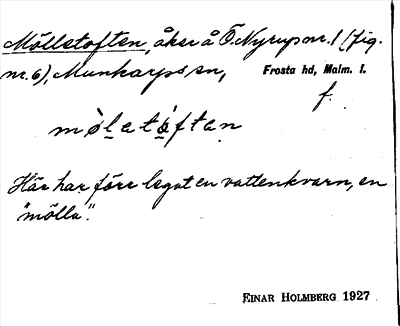 Möllstoften, åker å Ö. Nyrup nr. 1 (fig.
nr. 6), Munkarps sn, Frosta hd, Malm. l.
f.
mø̀letóftan
Här har förr legat en vattenkvarn, en
"mölla".
EINAR HOLMBERG 1927